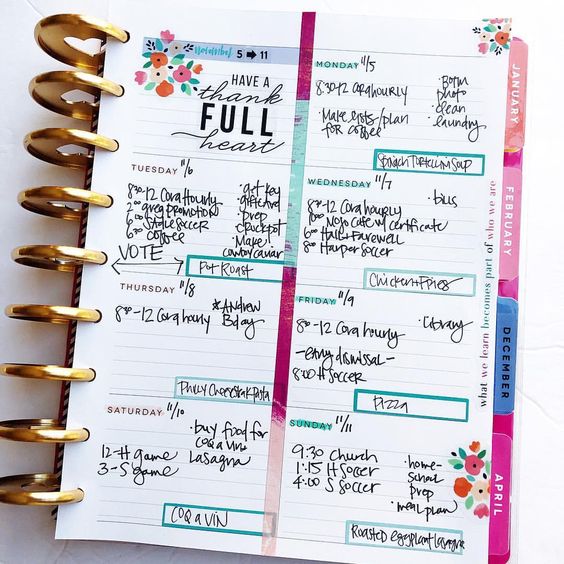 November 5 ➡ 11
HAVE A
thank
FULL
heart
MONDAY 11/5
8:30-12 Cora hourly
· Make lists/plan
for coffee
· Bottm
photo
· clean
· laundry
Spinach Tortellini Soup
TUESDAY 11/6
8:30-12 Cora Hourly
2:00 greg promotion
6:00 S table soccer
6:00 coffee
VOTE
· get key
· gift card
· prep
crockpot
· Make!
cowboy caviar
Pot Roast
WEDNESDAY 11/7
8:30-12 Cora hourly
6:00 Mojo Cafe w/ certificate
6:00 Hall Farewell
8:00 Harper soccer
· bills
Chicken + Fries
THURSDAY 11/8
8:30-12 Cora hourly
*Andrew
Bday
Philly Cheesesteak Pasta
FRIDAY 11/9
8:30-12 Cora hourly
-early dismissal-
8:00 H soccer
· Library
Pizza
SATURDAY 11/10
12-H game
3-S game
· buy food for
coq a vin
lasagna
COQ a VIN
SUNDAY 11/11
9:30 Church
1:15 H soccer
4:00 S soccer
· home-
school
prep
· meal plan
Roasted eggplant lasagna
what we learn becomes part of who we are
JANUARY
FEBRUARY
DECEMBER
APRIL